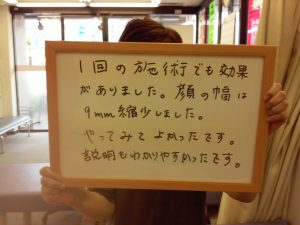 1回の施術でも効果
がありました。顔の幅は
9mm縮少しました。
やってみてよかったです。
説明もわかりやすかったです。